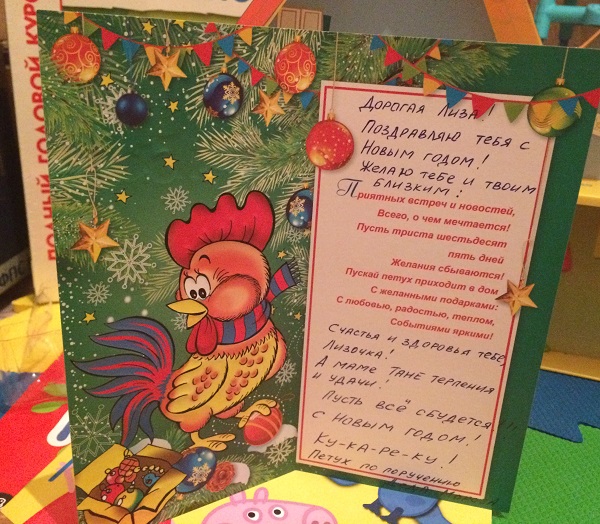 ПОЛНЫЙ ГОДОВОЙ КУРС
ДОРОГАЯ ЛИЗА!
ПОЗДРАВЛЯЮ ТЕБЯ С
НОВЫМ ГОДОМ!
ЖЕЛАЮ ТЕБЕ И ТВОИМ
БЛИЗКИМ:
Приятных встреч и новостей,
Всего, о чем мечтается!
Пусть триста шестьдесят
пять дней
Желания сбываются!
Пускай петух приходит в дом
С желанными подарками:
С любовью, радостью, теплом,
Событиями яркими!
СЧАСТЬЯ И ЗДОРОВЬЯ ТЕБЕ,
ЛИЗОЧКА!
А МАМЕ ТАНЕ ТЕРПЕНИЯ
И УДАЧИ!
ПУСТЬ ВСЁ СБУДЕТСЯ!
С НОВЫМ ГОДОМ!
КУ-КА-РЕ-КУ!
ПЕТУХ ПО ПОРУЧЕНИЮ